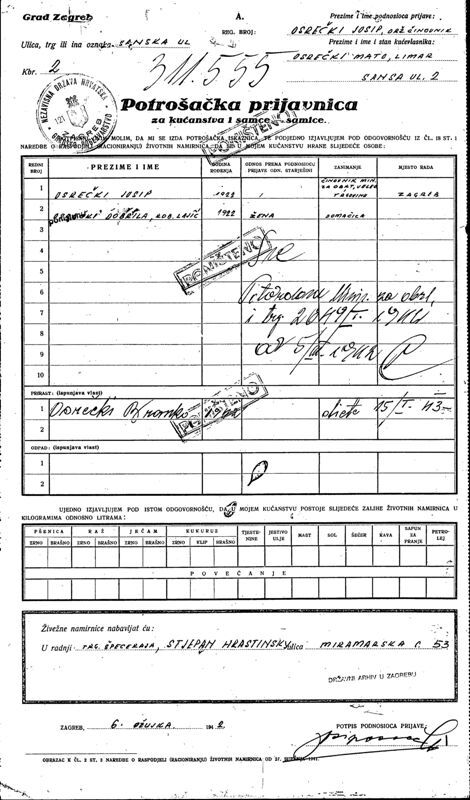 Grad Zagreb
A.
REG. BROJ:
Prezime i ime podnosioca prijave:
OSREČKI JOSIP, DRŽ. ČINOVNIK
Ulica, trg ili ina oznaka SANSKA UL
Prezime i ime i stan kućevlasnika:
OSREČKI MATO, LIMAR
Kbr. 2
311.555
SANSKA UL. 2
NEZAVISNA DRŽAVA HRVATSKA
Potrošačka prijavnica
za kućanstva i samce – samice.
PONIŠTENO
MOLIM, DA MI SE IZDA POTROŠAČKA ISKAZNICA, TE POJEDNO IZJAVLJUJEM POD ODGOVORNOŠĆU IZ ČL. 18 ST. 1
NAREDBE O RASPODJELI (RACIONIRANJU) ŽIVOTNIH NAMIRNICA, DA SE U MOJEM KUĆANSTVU HRANE SLIJEDEĆE OSOBE:
REDNI BROJ
PREZIME I IME
GODINA ROĐENJA
ODNOS PREMA PODNOSIOCU PRIJAVE ODN. STARJEŠINI
ZANIMANJE
MJESTO RADA
1 OSREČKI JOSIP ČINOVNIK MIN. ZAGREB
2 DOBRILA, ROĐ. 1922 ŽENA DOMAĆICA
3
4
PONIŠTENO
5
6
7
8
9
10
PRIRAST: (ispunjava vlast)
1 Osrečki Branko dijete 15/I. 43
PONIŠTENO
2
ODPAD: (ispunjava vlast)
1
2
UJEDNO IZJAVLJUJEM POD ISTOM ODGOVORNOŠĆU, DA U MOJEM KUĆANSTVU POSTOJE SLIJEDEĆE ZALIHE ŽIVOTNIH NAMIRNICA U
KILOGRAMIMA ODNOSNO LITRAMA:
PŠENICA RAŽ JEČAM KUKURUZ TJESTENINE JESTIVO ULJE MAST SOL ŠEĆER KAVA SAPUN ZA PRANJE PETROLEJ
ZRNO BRAŠNO ZRNO BRAŠNO ZRNO BRAŠNO ZRNO KLIP BRAŠNO
POVEĆANJE
Živežne namirnice nabavljat ću:
U radnji TRG. ŠPECERAJA, STJEPAN HRASTINSKY ulica MIRAMARSKA C. 53
DRŽAVNI ARHIV U ZAGREBU
ZAGREB, 6. OŽUJKA 1942
POTPIS PODNOSIOCA PRIJAVE:
OBRAZAC K ČL. 2 ST. 2 NAREDBE O RASPODJELI (RACIONIRANJU) ŽIVOTNIH NAMIRNICA OD 27. 1941.